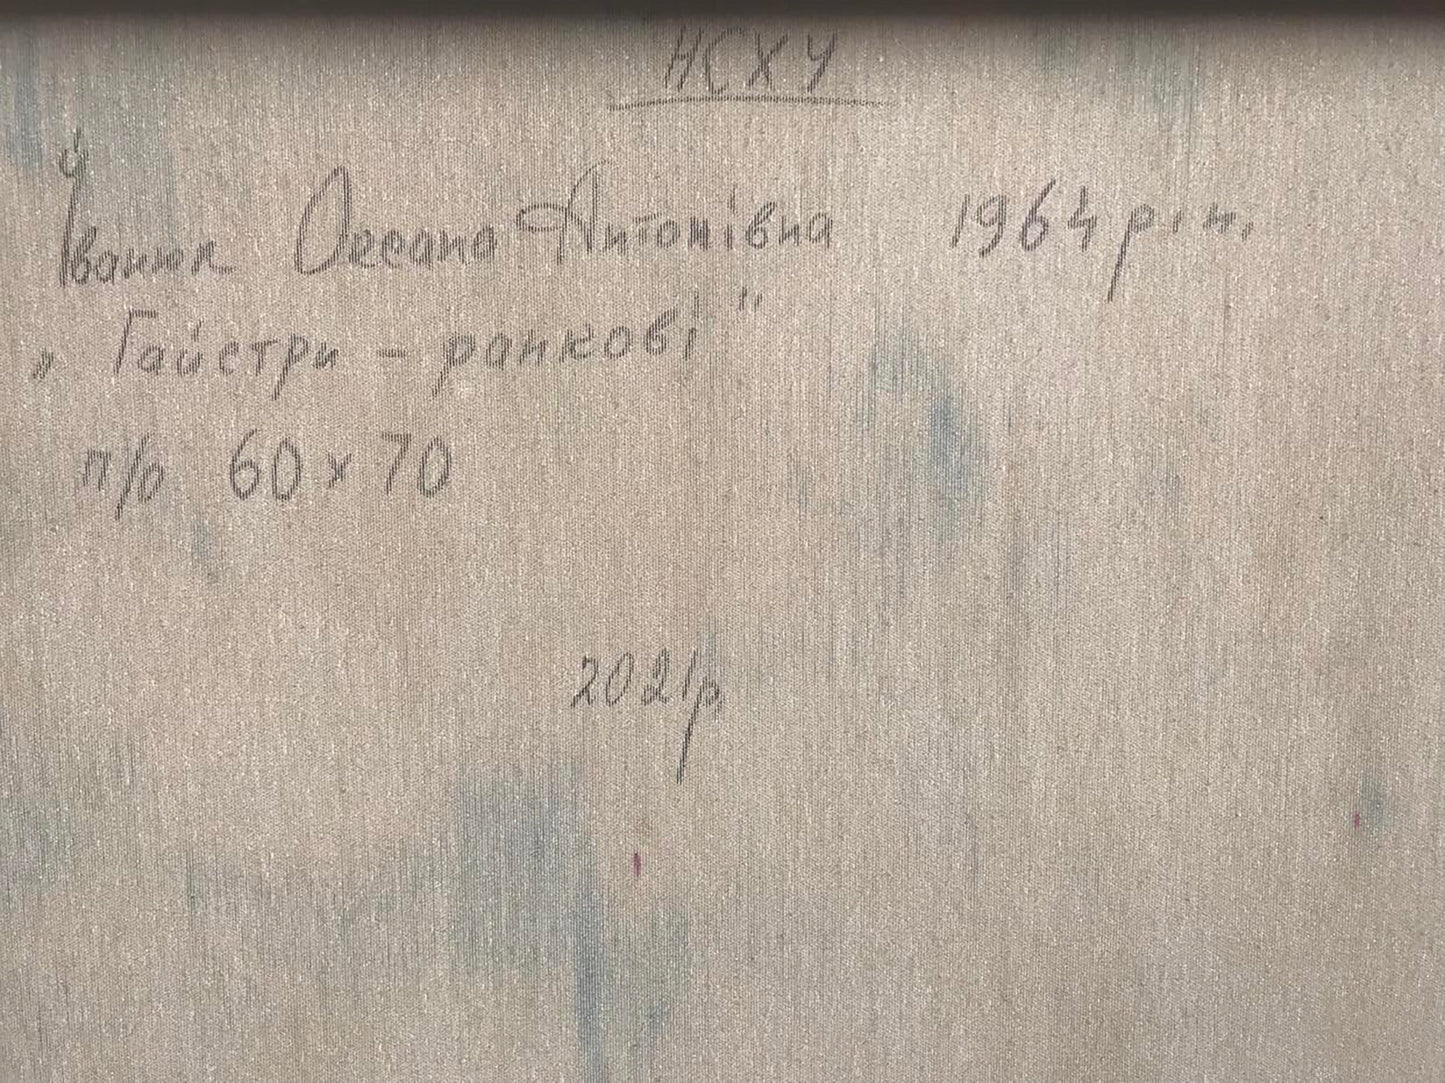 НСХУ
Іванюк Оксана Антонівна 1964 р.н.
„Гайстри - ранкові"
п/о 60х70
2021р